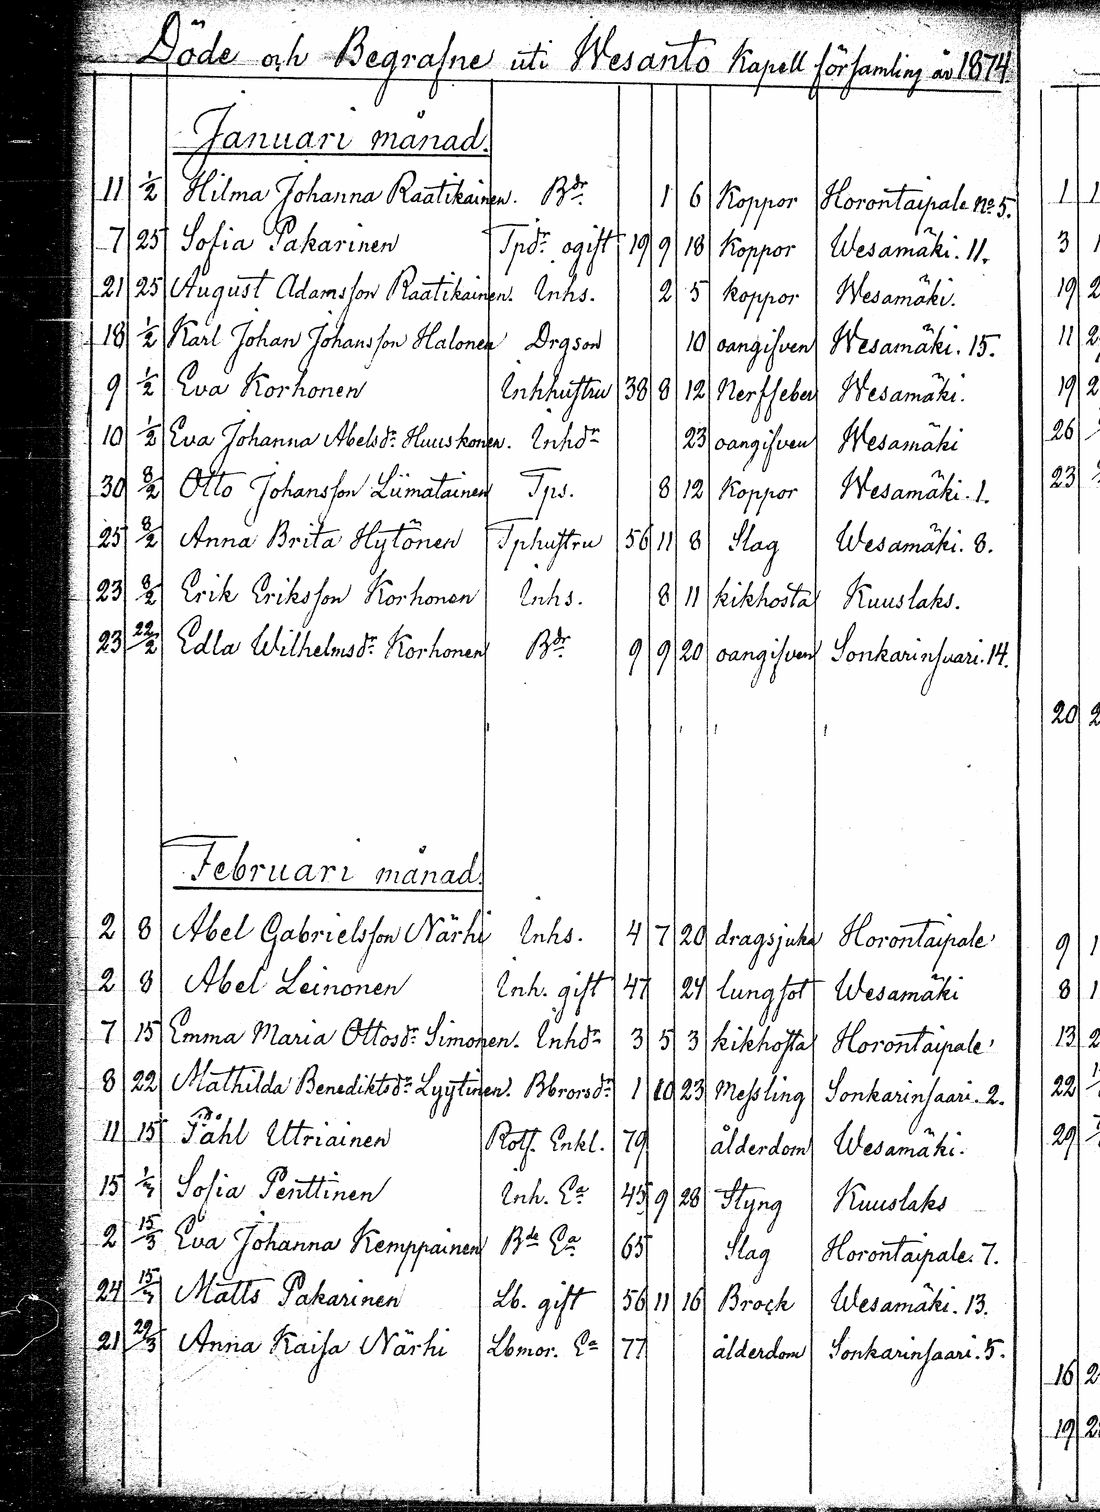 Döde och Begrafne uti Wesanto Kapell församling år 1874.
Januari månad.
11 1/2 Hilma Johanna Raatikainen. Bdr. 1 6 Koppor Horontaipale No 5. 1
7 25 Sofia Pakarinen Tpdr. ogift 19 9 18 Koppor Wesamäki. 11. 3
21 25 August Adamsson Raatikainen. Inhs. 2 5 koppor Wesamäki. 19
18 1/2 Karl Johan Johansson Halonen Drgson 10 oangifven Wesamäki. 15. 11
9 1/2 Eva Korhonen Inhhustru 38 8 12 Nerffeber Wesamäki. 19
10 1/2 Eva Johanna Abelsdr. Huuskonen. Inhdr 23 oangifven Wesamäki 26
30 8/2 Otto Johansson Liimatainen Tps. 8 12 Koppor Wesamäki. 1. 23
25 8/2 Anna Brita Hytönen Tphustru 56 11 8 Slag Wesamäki. 8.
23 8/2 Erik Eriksson Korhonen Inhs. 8 11 kikhosta Kuuslaks.
23 22/2 Edla Wilhelmsdr. Korhonen Bdr. 9 9 20 oangifven Sonkarinsaari. 14.
20
Februari månad.
2 8 Abel Gabrielsson Närhi Inhs. 4 7 20 dragsjuka Horontaipale 9
2 8 Abel Leinonen Inh. gift 47 24 lungsot Wesamäki 8
7 15 Emma Maria Ottosdr. Simonen. Inhdr 3 5 3 kikhosta Horontaipale 13
8 22 Mathilda Benediktsdr. Lyytinen. Bbrorsdr. 1 10 23 Messling Sonkarinsaari. 2. 22
11 15 Påhl Utriainen Rotf. Enkl. 79 ålderdom Wesamäki. 29
15 1/3 Sofia Penttinen Inh. Ea 45 9 28 Styng Kuuslaks
2 15/3 Eva Johanna Kemppainen Bde Ea 65 Slag Horontaipale. 7.
24 15/3 Matts Pakarinen Lb. gift 56 11 16 Brock Wesamäki. 13.
21 29/3 Anna Kaisa Närhi Lbmor. Ea 77 ålderdom Sonkarinsaari. 5.
16
19